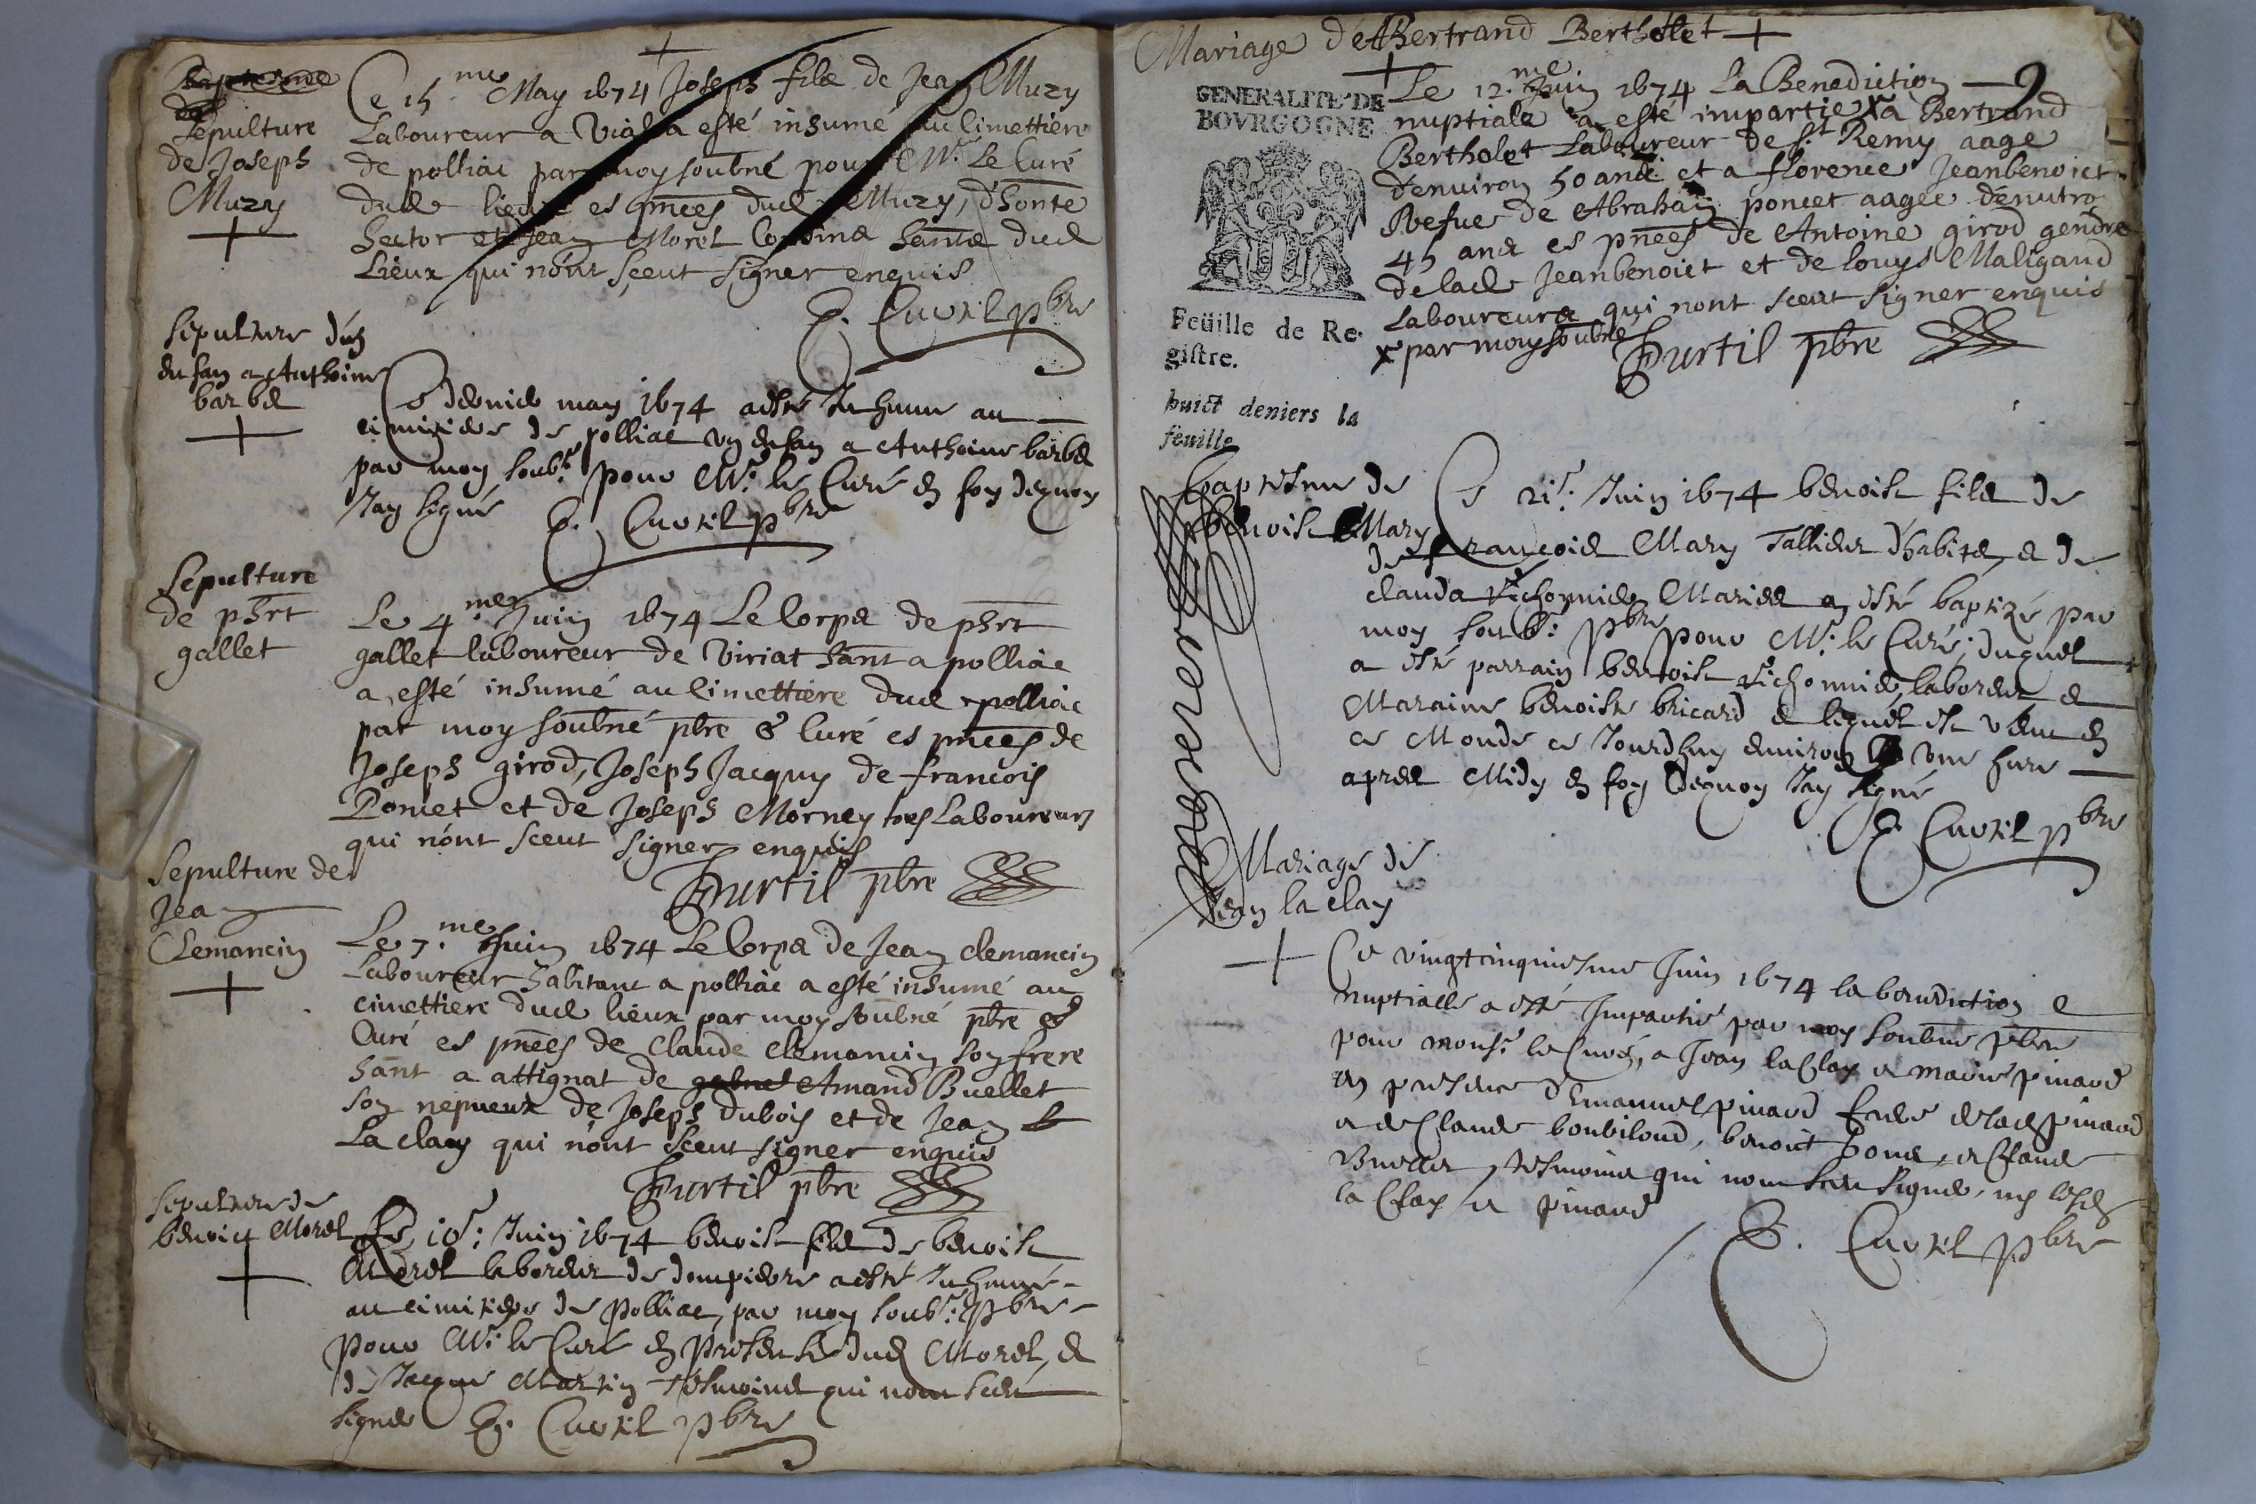 Sepulture
de Joseph
Muzy
Ce 15me May 1674 Joseph filz de Jean Muzy
Laboureur a Vial a esté inhumé au Cimettiere
de polliac par moy soubné pour Mr. Le Curé
dud lieux es pnces dud Muzy, d'honte
hector et Jean Morel Cousins hants dud
Lieux qui nont sçeut signer enquis
E. Curtil pbre
Sepulture d'un
enfan a Anthoine
barbe
Ce dernier may 1674 a esté Inhumé au
cimitiere de polliac un enfan a Anthoine barbe
par moy soubt. pour Mr. le Curé en foy dequoy
Jay signé E. Curtil pbre
Sepulture
de phrt
gallet
Le 4me Juin 1674 Le Corps de phrt
gallet laboureur de Viriat hant a polliac
a esté inhumé au Cimettiere dud polliac
par moy soubné pbre & Curé es pnces de
Joseph girod, Joseph Jacquy de francois
Poncet et de Joseph Morney tres Laboureurs
qui nont sceut signer enquis
Curtil pbre
Sepulture de
Jean
Clemancin
Le 7me Juin 1674 Le Corps de Jean clemancin
Laboureur habitant a polliac a esté inhumé au
cimettiere dud lieux par moy soubné pbre &
Curé es pnces de Claude Clemancin son frere
hant a attignat de Amand Buellet
son nepueux de Joseph dubois et de Jean
La clay qui nont sceut signer enquis
Curtil pbre
Sepulture de
benoict Morel
Le 10e: Juin 1674 benoist filz de benoist
Morel laboreur de dompierre a esté Inhumé
au cimitiere de Polliac, par moy soubt: pbre
pour Mr. le Curé en presense dud Morel, &
de Jacque Martin tesmoins qui nont sceu
signer E. Curtil pbre
Mariage de Bertrand Bertholet
9
GENERALITE' DE
BOVRGOGNE
Feüille de Re-
gistre.
huict deniers la
feuille
Le 12.me Juin 1674 La Benediction
nuptiale a esté impartie x a Bertrand
Bertholet Laboureur de St Remy aage
denuiron 50 ans et a florence Jeanbenoict
Vefue de Abraham poncet aagee denuiro
45 ans es pnces de Antoine girod gendre
de lad Jeanbenoict et de louys Maligand
Laboureurs qui nont sceut signer enquis
x par moy soubné Curtil pbre
Baptesme de
benoist Mary
Ce 21e. Juin 1674 benoist filz de
de francois Mary Tallieur d'habits, & de
clauda Vichonnier Mariés a esté baptizé par
moy soub: pbre pour Mr. le Curé; duquel
a esté parrain benoist Vichonnier laboreur &
Maraine benoiste bricard & lequel est venu en
ce Monde ce Jourdhuy environ une hure
apres Midy en foy dequoy Jay signé
E. Curtil pbre
Mariage de
Jean la clay
Ce vingtcinquiesme Juin 1674 la benediction
nuptialle a esté Impartie par moy soubné pbre
pour monsr. le Curé, a Jean la Clay et marie pinard
en presence d'Emanuel pinard frere de lad pinard
et de Claude boubiloud, benoit pone, et Claude
Vuellet tesmoins qui nont sceu signer, ny lesd
la Clay et pinard
E. Curtil pbre